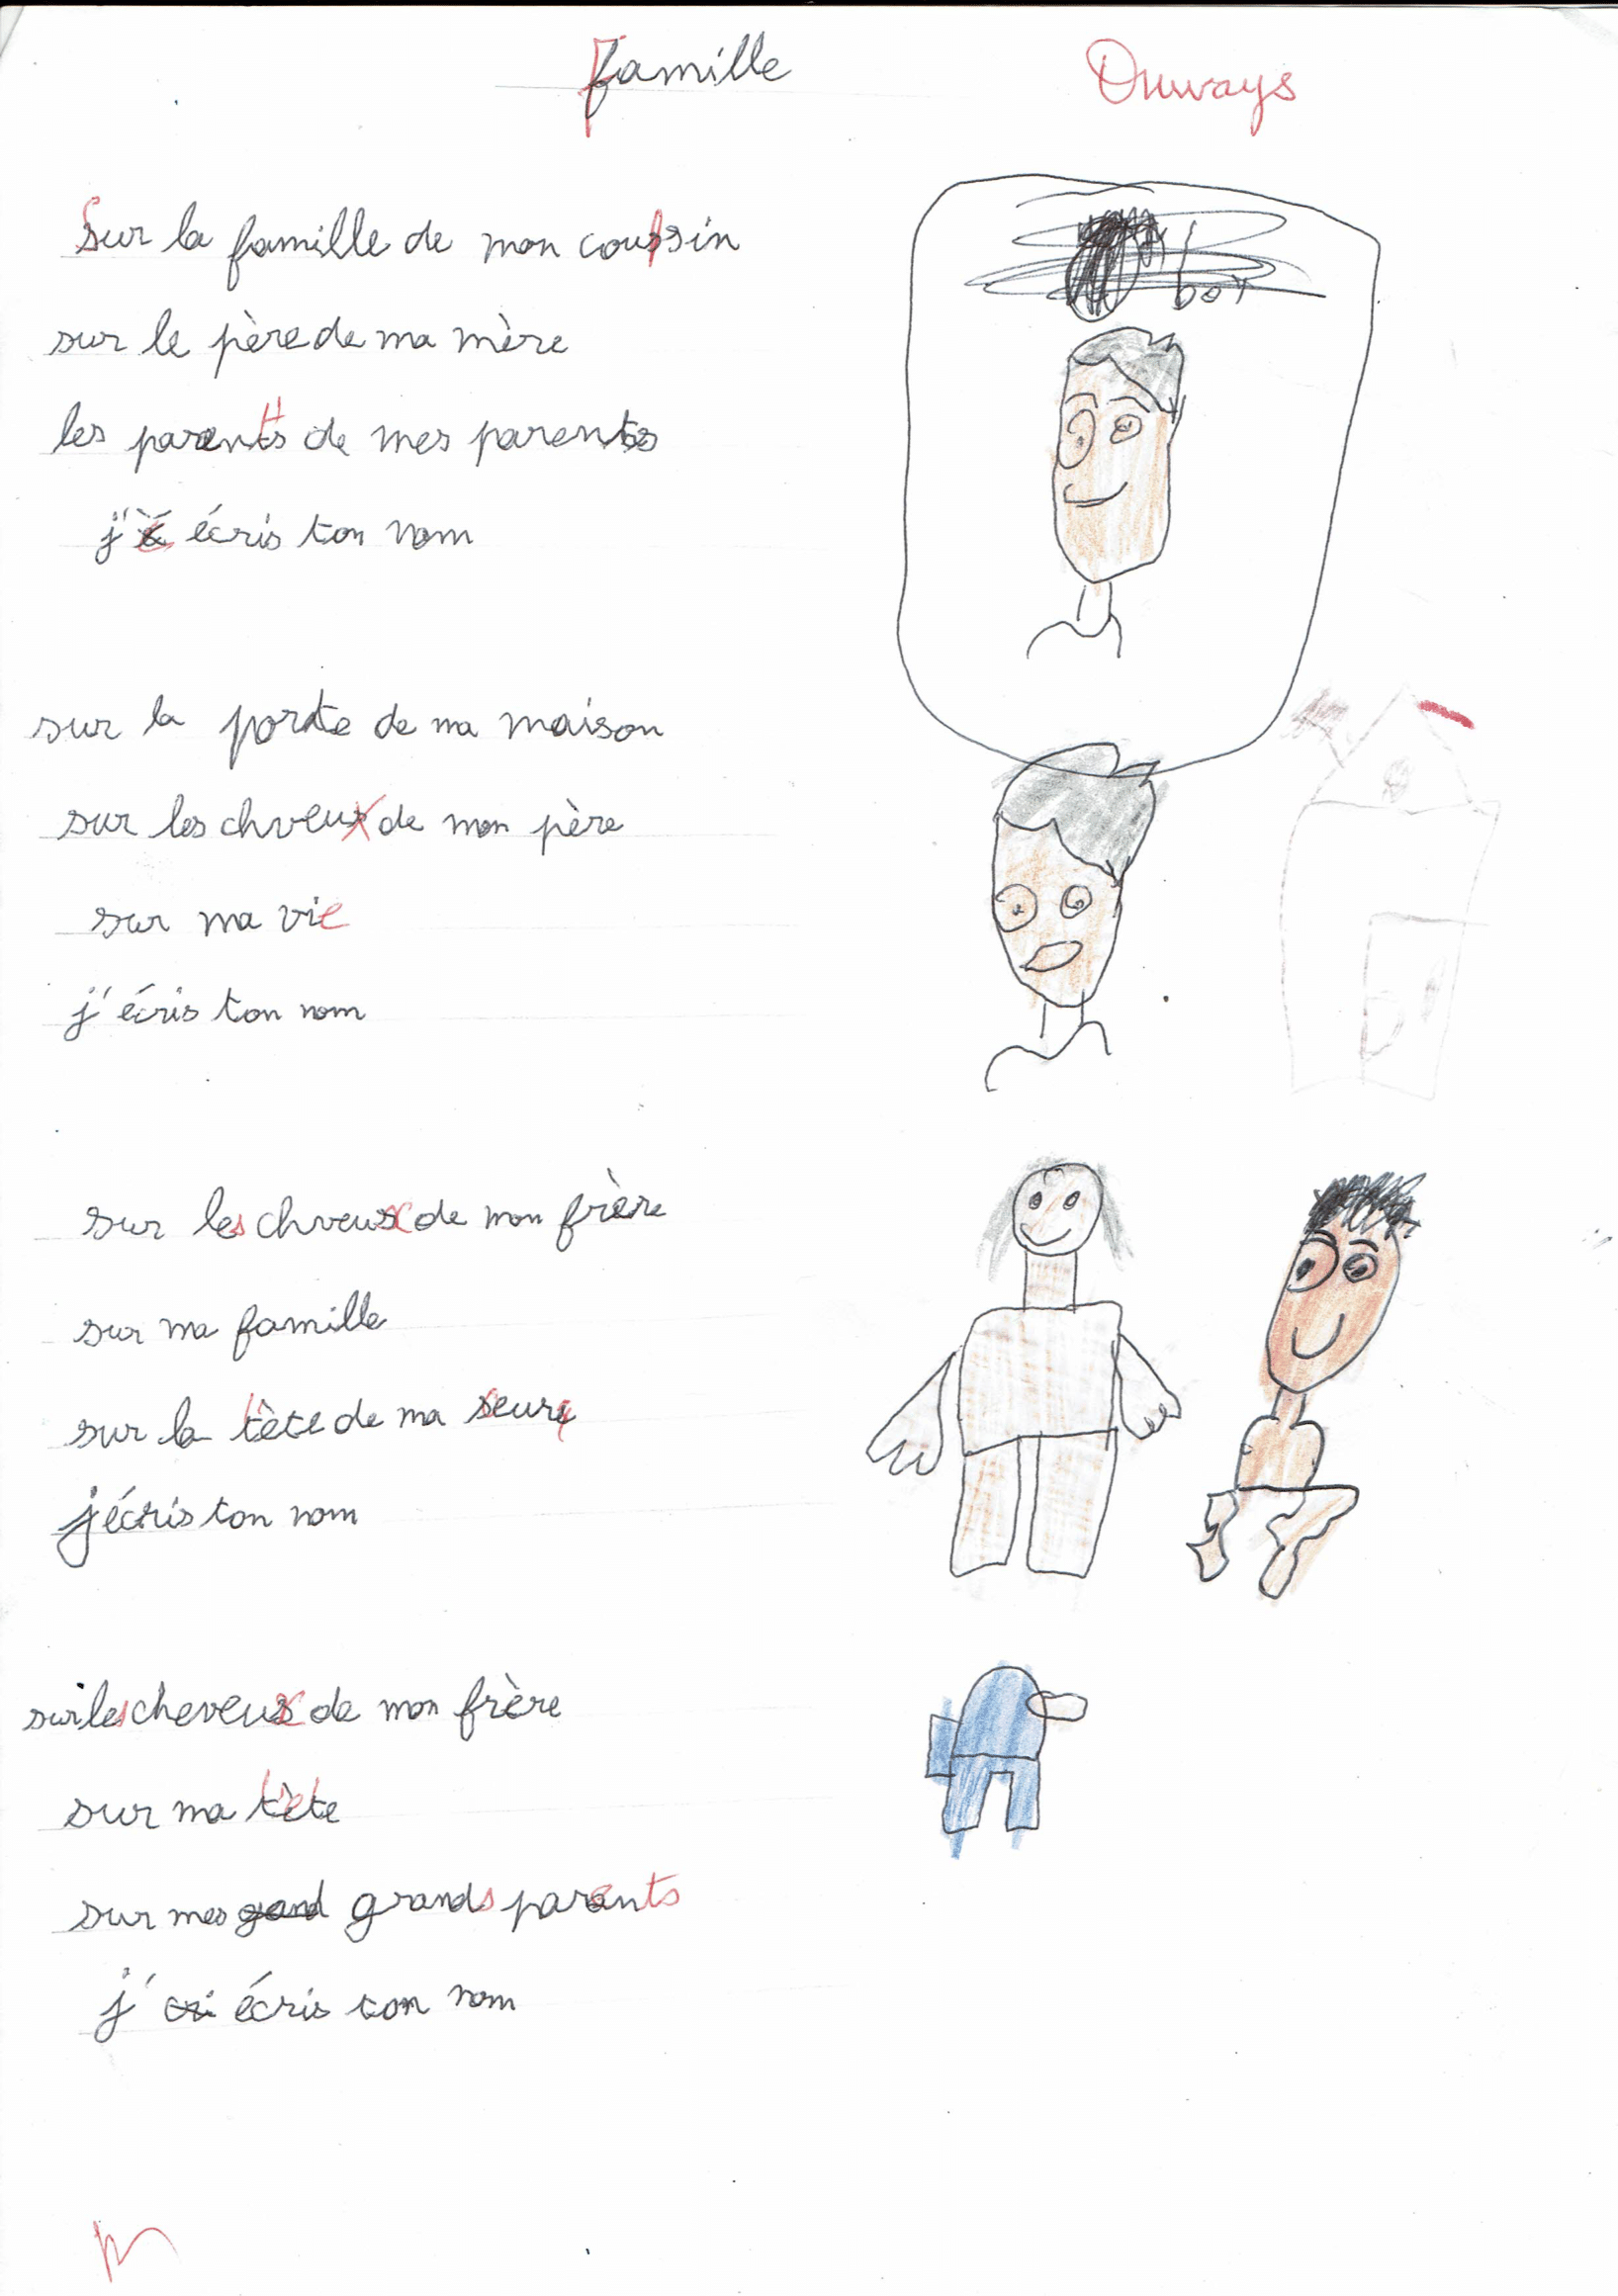 Famille
Ouways
Sur la famille de mon cousin
sur le père de ma mère
les parents de mes parents
j' écris ton nom
sur la porte de ma maison
sur les chveux de mon père
sur ma vie
j'écris ton nom
sur les chveux de mon frère
sur ma famille
sur la tète de ma seur
j'écris ton nom
sur les cheveux de mon frère
sur ma tète
sur mes grands parents
j' écris ton nom